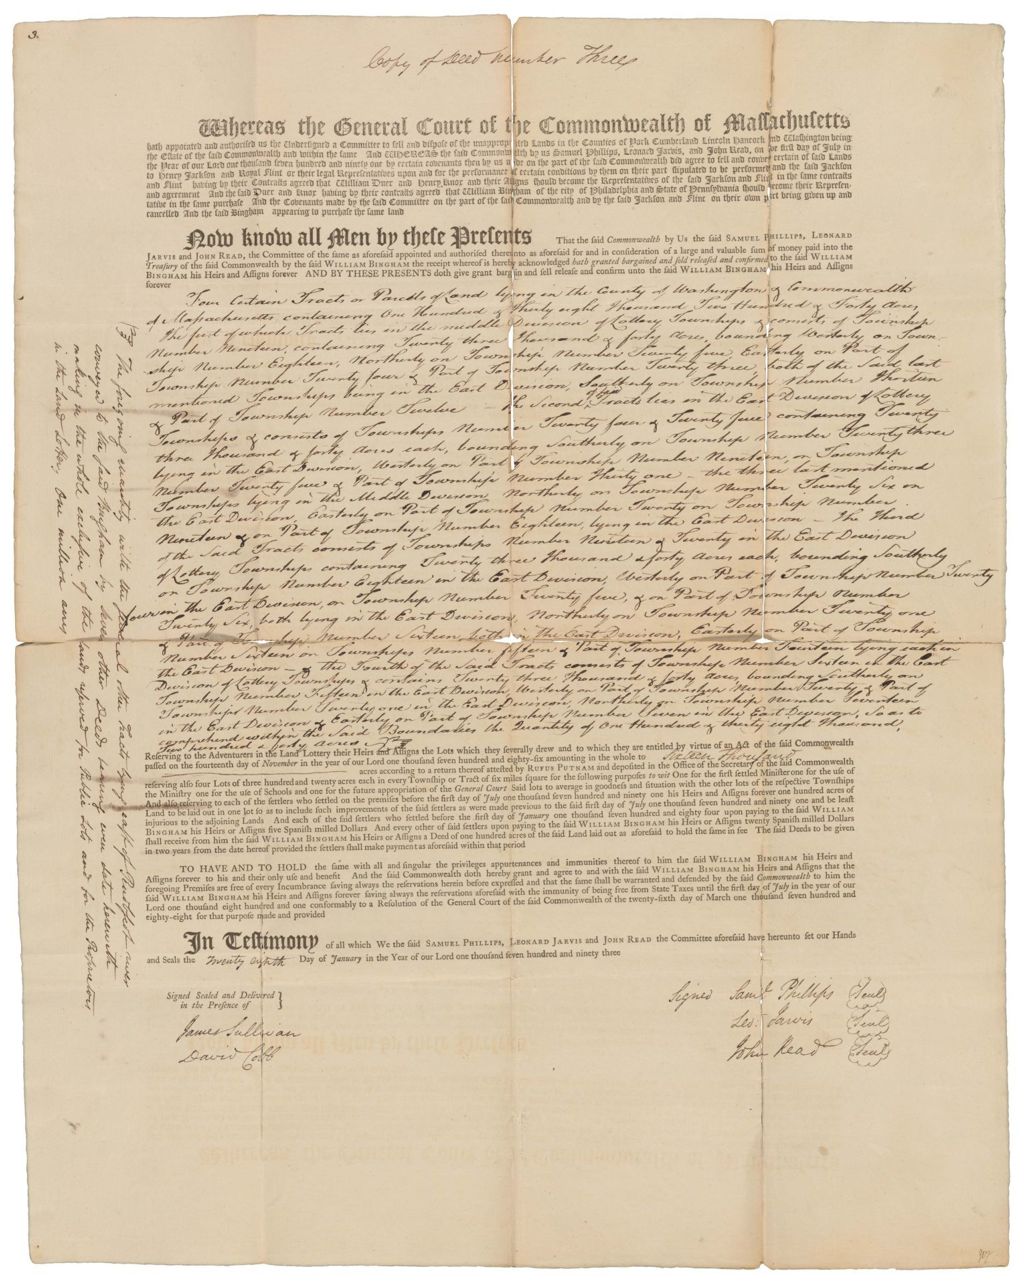 3.
Copy of Deed Number Three
Whereas the General Court of the Commonwealth of Massachusetts
hath appointed and authorised us the Undersigned a Committee to sell and dispose of the unappropriated Lands in the Counties of York Cumberland Lincoln Hancock and Washington being
the Estate of the said Commonwealth and within the same And WHEREAS the said Commonwealth by us Samuel Phillips, Leonard Jarvis, and John Read, on the first day of July in
the Year of our Lord one thousand seven hundred and ninety one by certain covenants then by us on the part of the said Commonwealth did agree to sell and convey certain of said Lands
to Henry Jackson and Royal Flint or their legal Representatives upon and for the performance of certain conditions by them on their part stipulated to be performed and the said Jackson
and Flint having by their Contracts agreed that William Duer and Henry Knox and their Assigns should become the Representatives of the said Jackson and Flint in the same contracts
and agreement And the said Duer and Knox having by their contracts agreed that William Bingham of the city of Philadelphia and State of Pennsylvania should become their Represen-
tative in the same purchase And the Covenants made by the said Committee on the part of the said Commonwealth and by the said Jackson and Flint on their own part being given up and
cancelled And the said Bingham appearing to purchase the same land
Now know all Men by these Presents That the said Commonwealth by Us the said SAMUEL PHILLIPS, LEONARD
JARVIS and JOHN READ, the Committee of the same as aforesaid appointed and authorised thereunto as aforesaid for and in consideration of a large and valuable sum of money paid into the
Treasury of the said Commonwealth by the said WILLIAM BINGHAM the receipt whereof is hereby acknowledged hath granted bargained and sold released and confirmed to the said WILLIAM
BINGHAM his Heirs and Assigns forever AND BY THESE PRESENTS doth give grant bargain and sell release and confirm unto the said WILLIAM BINGHAM his Heirs and Assigns
forever
Four Certain Tracts or Parcels of Land lying in the County of Washington & Commonwealth
of Massachusetts containing One Hundred & thirty eight Thousand Two Hundred & Forty Acres,
The first of which Tracts lies in the middle Division of Lottery Townships & consists of Township
Number Nineteen, containing Twenty three thousand & forty Acres, bounding Westerly on Town-
ship Number Eighteen, Northerly on Township Number Twenty five, Easterly on Part of
Township Number Twenty four & Part of Township Number Twenty three, both of the Said last
mentioned Townships being in the East Division, Southerly on Township Number Thirteen
& Part of Township Number Twelve — the Second Tracts lies in the East Division of Lottery
Townships & consists of Townships Number Twenty four & Twenty five containing Twenty
three Thousand & forty Acres each, bounding Southerly on Township Number Twenty three
lying in the East Division, Westerly on Part of Township Number Nineteen, on Township
Number Twenty five & Part of Township Number Thirty one — the three last mentioned
Townships lying in the Middle Division Northerly on Township Number Twenty Six on
the East Division, Easterly on Part of Township Number Twenty on Township Number
Nineteen & on Part of Township Number Eighteen, lying in the East Division — the Third
of the Said Tracts consists of Townships Number Nineteen & Twenty in the East Division
of Lottery Townships containing Twenty three Thousand & forty Acres each, bounding Southerly
on Township Number Eighteen in the East Division, Westerly on Part of Township Number Twenty
four in the East Division, on Township Number Twenty five, & on Part of Township Number
Twenty Six, both lying in the East Division, Northerly on Township Number Twenty one
& Part of Township Number Sixteen, both in the East Division, Easterly on Part of Township
Number Sixteen on Townships Number fifteen & Part of Township Number Fourteen lying each in
the East Division — & the Fourth of the Said Tracts consists of Township Number Sixteen in the East
Division of Lottery Townships & contains Twenty three Thousand & forty Acres, bounding Southerly on
Township Number Fifteen in the East Division, Westerly on Part of Township Number Twenty & Part of
Township Number Twenty one in the East Division, Northerly on Township Number Seventeen
in the East Division & Easterly on Part of Township Number Seven in the East Division, So as to
comprehend within the Said Boundaries the Quantity of One Hundred & thirty eight Thousand,
Two hundred & forty Acres
Reserving to the Adventurers in the Land Lottery their Heirs and Assigns the Lots which they severally drew and to which they are entitled by virtue of an Act of the said Commonwealth
passed on the fourteenth day of November in the year of our Lord one thousand seven hundred and eighty-six amounting in the whole to Sixteen Thousand
acres according to a return thereof attested by RUFUS PUTNAM and deposited in the Office of the Secretary of the said Commonwealth
reserving also four Lots of three hundred and twenty acres each in every Township or Tract of six miles square for the following purposes to wit One for the first settled Minister one for the use of
the Ministry one for the use of Schools and one for the future appropriation of the General Court Said lots to average in goodness and situation with the other lots of the respective Townships
And also reserving to each of the settlers who settled on the premises before the first day of July one thousand seven hundred and ninety one his Heirs and Assigns forever one hundred acres of
Land to be laid out in one lot so as to include such improvements of the said settlers as were made previous to the said first day of July one thousand seven hundred and ninety one and be least
injurious to the adjoining Lands And each of the said settlers who settled before the first day of January one thousand seven hundred and eighty four upon paying to the said WILLIAM
BINGHAM his Heirs or Assigns five Spanish milled Dollars And every other of said settlers upon paying to the said WILLIAM BINGHAM his Heirs or Assigns twenty Spanish milled Dollars
shall receive from him the said WILLIAM BINGHAM his Heirs or Assigns a Deed of one hundred acres of the said Land laid out as aforesaid to hold the same in fee The said Deeds to be given
in two years from the date hereof provided the settlers shall make payment as aforesaid within that period
TO HAVE AND TO HOLD the same with all and singular the privileges appurtenances and immunities thereof to him the said WILLIAM BINGHAM his Heirs and
Assigns forever to his and their only use and benefit And the said Commonwealth doth hereby grant and agree to and with the said WILLIAM BINGHAM his Heirs and Assigns that the
foregoing Premises are free of every Incumbrance saving always the reservations herein before expressed and that the same shall be warranted and defended by the said Commonwealth to him the
said WILLIAM BINGHAM his Heirs and Assigns forever saving always the reservations aforesaid with the immunity of being free from State Taxes until the first day of July in the year of our
Lord one thousand eight hundred and one conformably to a Resolution of the General Court of the said Commonwealth of the twenty-sixth day of March one thousand seven hundred and
eighty-eight for that purpose made and provided
In Testimony of all which We the said SAMUEL PHILLIPS, LEONARD JARVIS and JOHN READ the Committee aforesaid have hereunto set our Hands
and Seals the Twenty eighth Day of January in the Year of our Lord one thousand seven hundred and ninety three
Signed Sealed and Delivered }
in the Presence of
James Sullivan
David Cobb
Signed Saml Phillips Seal
Leod Jarvis Seal
John Read Seal
The foregoing quantity with the several other Tracts lying east of Penobscot river
conveyed to the said Bingham by Seven other Deeds bearing even date herewith
making in the whole exclusive of the land reserved for Public Lots and for the Proprietors
in the Land Lottery One million acres